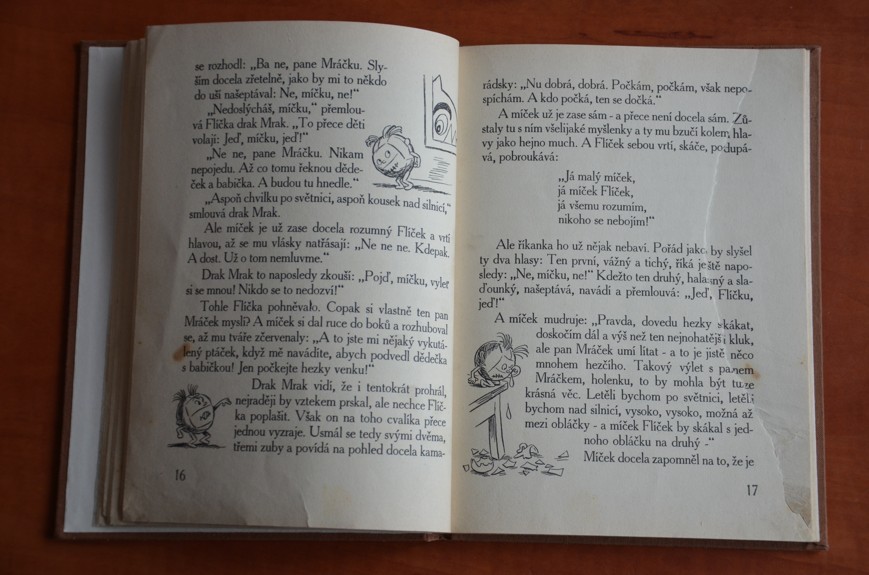 se rozhodl: „Ba ne, pane Mráčku. Sly-
ším docela zřetelně, jako by mi to někdo
do uší našeptával: Ne, míčku, ne!“
„Nedoslýcháš, míčku,“ přemlou-
vá Flíčka drak Mrak. „To přece děti
volají: Jeď, míčku, jeď!“
„Ne ne, pane Mráčku. Nikam
nepojedu. Až co tomu řeknou děde-
ček a babička. A budou tu hnedle.“
„Aspoň chvilku po světnici, aspoň kousek nad silnicí,“
smlouvá drak Mrak.
Ale míček je už zase docela rozumný Flíček a vrtí
hlavou, až se mu vlásky natřásají: „Ne ne ne. Kdepak.
A dost. Už o tom nemluvme.“
Drak Mrak to naposledy zkouší: „Pojď, míčku, vyleť
si se mnou! Nikdo se to nedozví!“
Tohle Flíčka pohněvalo. Copak si vlastně ten pan
Mráček myslí? A míček si dal ruce do boků a rozhuboval
se, až mu tváře zčervenaly: „A to jste mi nějaký vykutá-
lený ptáček, když mě navádíte, abych podvedl dědečka
s babičkou! Jen počkejte hezky venku!“
Drak Mrak vidí, že i tentokrát prohrál,
nejraději by vztekem prskal, ale nechce Flíč-
ka poplašit. Však on na toho cvalíka přece
jednou vyzraje. Usmál se tedy svými dvěma,
třemi zuby a povídá na pohled docela kama-
16
rádsky: „Nu dobrá, dobrá. Počkám, počkám, však nepo-
spíchám. A kdo počká, ten se dočká.“
A míček už je zase sám - a přece není docela sám. Zů-
staly tu s ním všelijaké myšlenky a ty mu bzučí kolem hla-
vy jako hejno much. A Flíček sebou vrtí, skáče, podupá-
vá, pobroukává:
„Já malý míček,
já míček Flíček,
já všemu rozumím,
nikoho se nebojím!“
Ale říkanka ho už nějak nebaví. Pořád jako by slyšel
ty dva hlasy: Ten první, vážný a tichý, říká ještě napo-
sledy: „Ne, míčku, ne!“ Kdežto ten druhý, halasný a sla-
ďounký, našeptává, navádí a přemlouvá: „Jeď, Flíčku,
jeď!“
A míček mudruje: „Pravda, dovedu hezky skákat,
doskočím dál a výš než ten nejnohatější kluk,
ale pan Mráček umí lítat - a to je jistě něco
mnohem hezčího. Takový výlet s panem
Mráčkem, holenku, to by mohla být tuze
krásná věc. Letěli bychom po světnici, letěli
bychom nad silnicí, vysoko, vysoko, možná až
mezi obláčky - a míček Flíček by skákal s jed-
noho obláčku na druhý -“
Míček docela zapomněl na to, že je
17